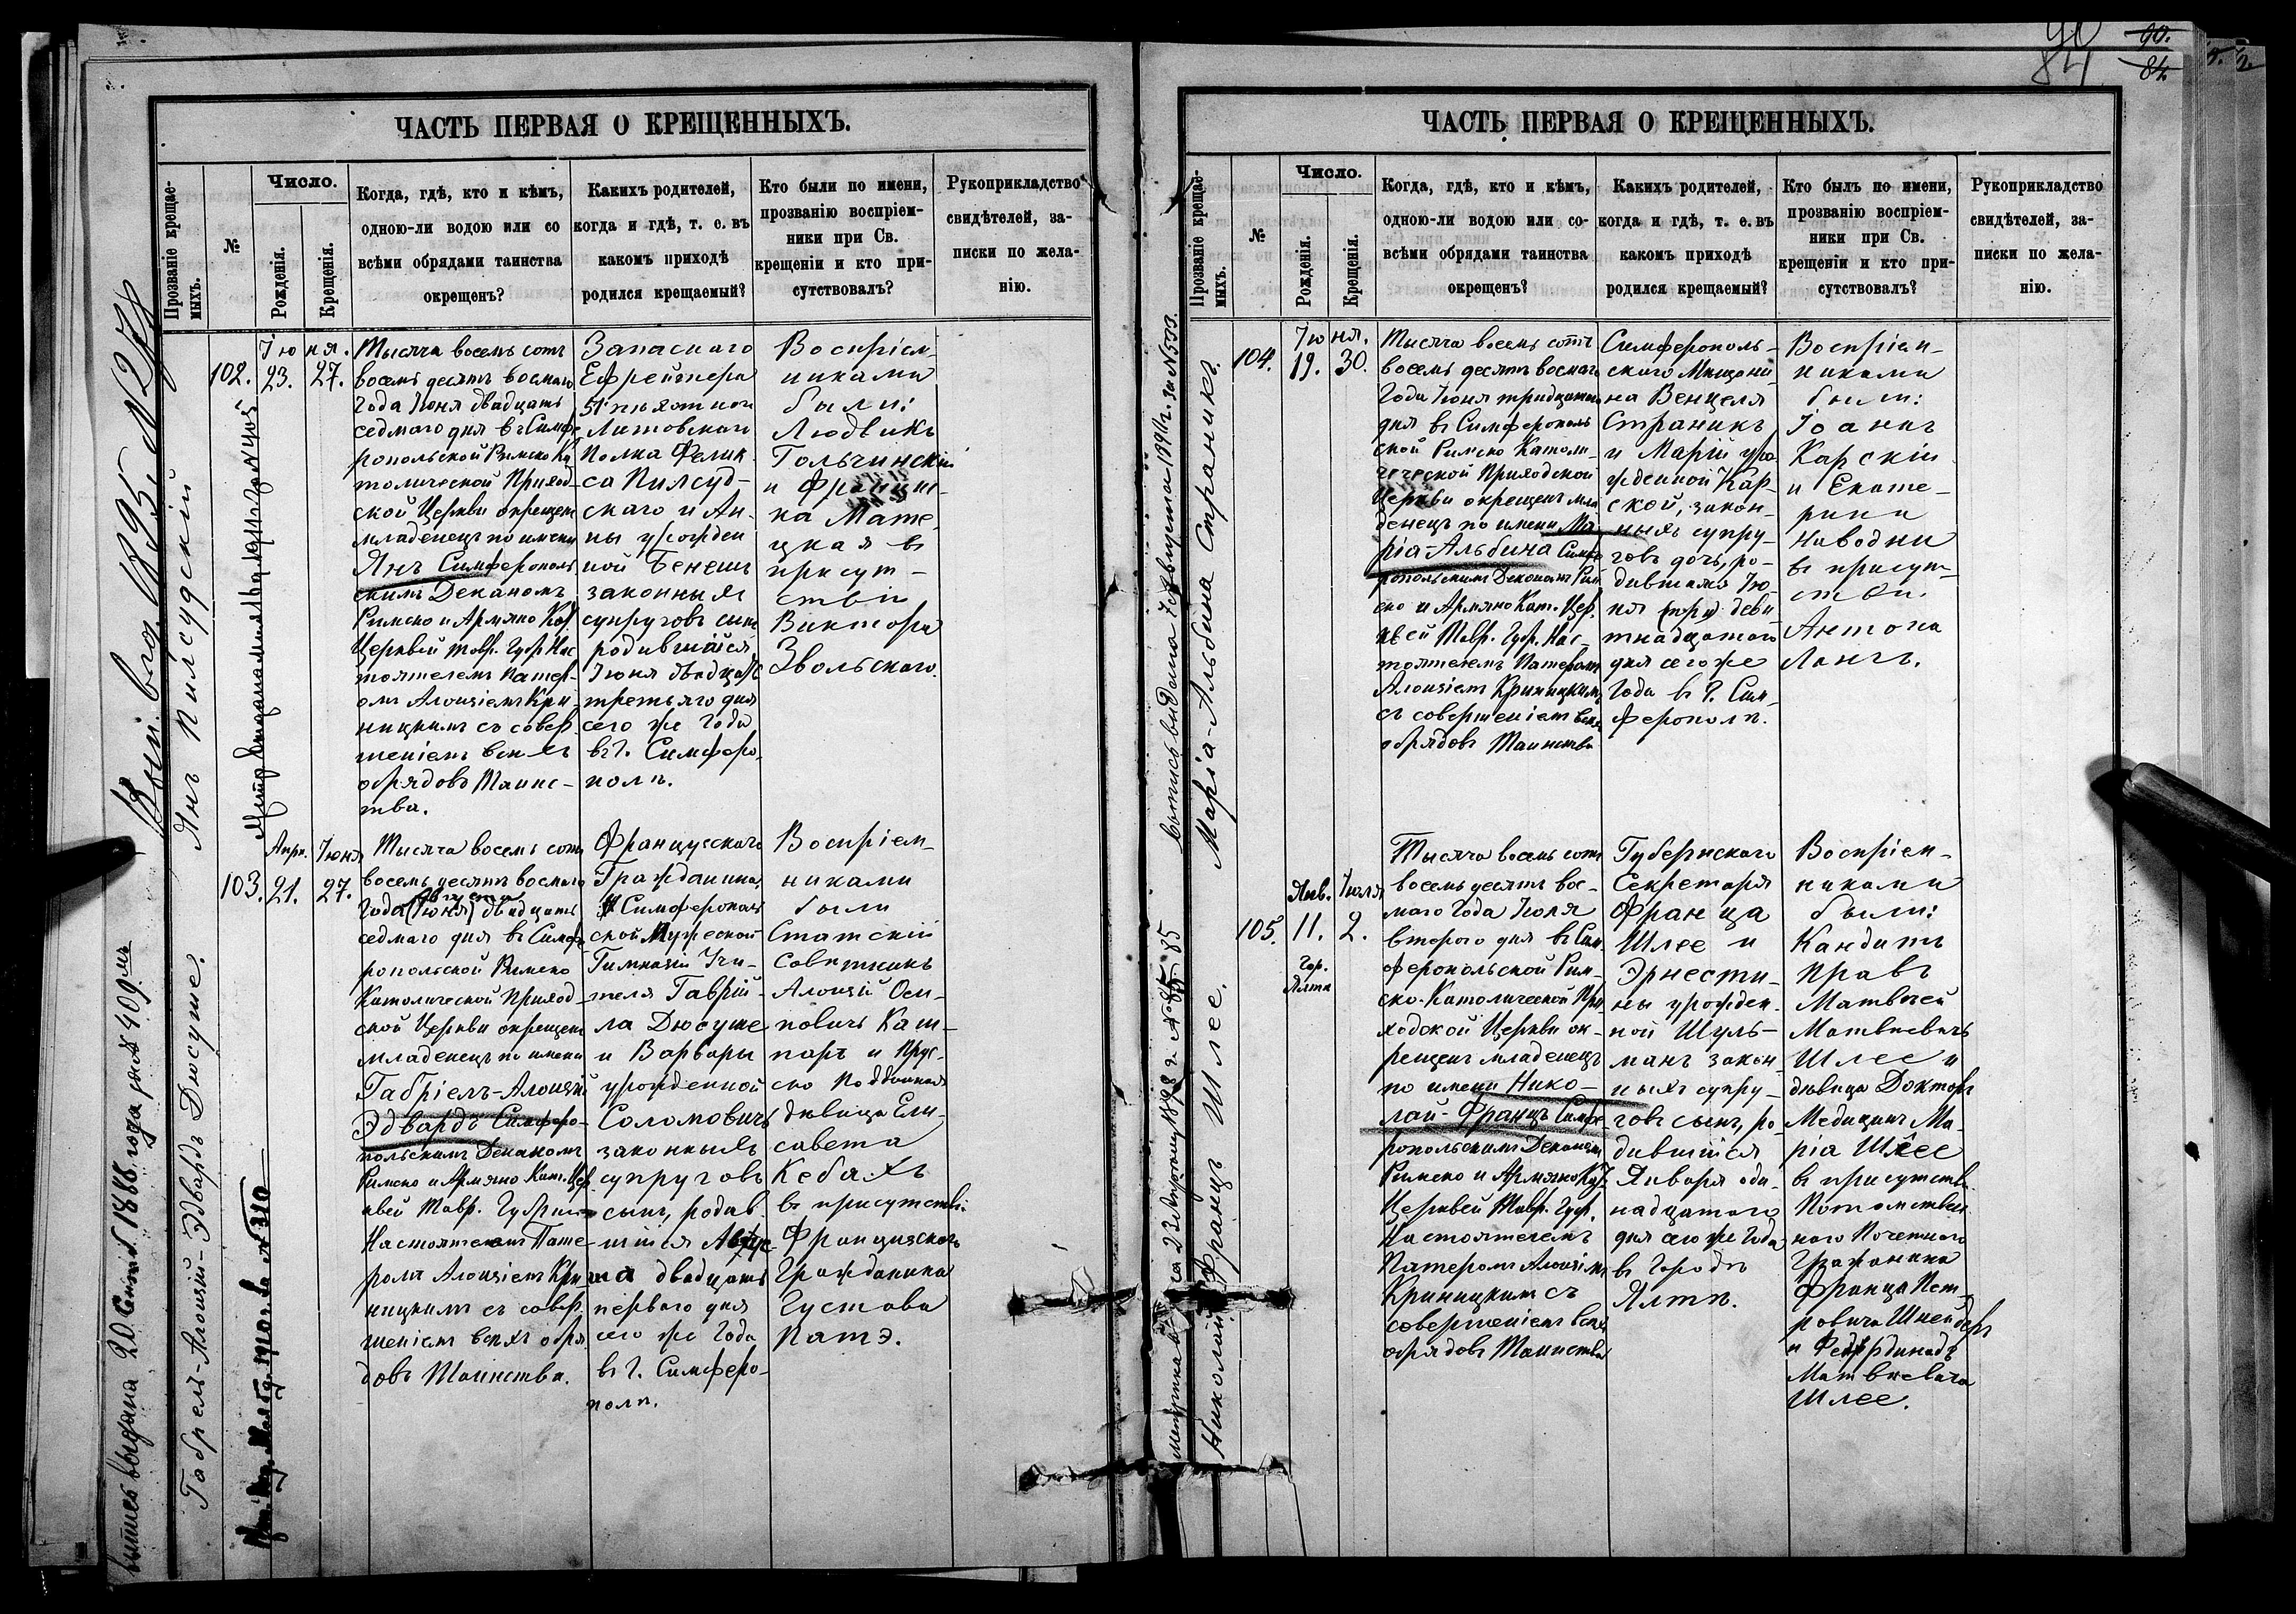 90
84
90.
84.
ЧАСТЬ ПЕРВАЯ О КРЕЩЕННЫХЪ.
Прозваніе крещае-
мыхъ.
№
Число.
Рожденія.
Крещенія.
Когда, гдѣ, кто и кѣмъ,
одною-ли водою или со
всѣми обрядами таинства
окрещенъ?
Какихъ родителей,
когда и гдѣ, т. е. въ
какомъ приходѣ
родился крещаемый?
Кто были по имени,
прозванію воспріем-
ники при Св.
крещеніи и кто при-
сутствовалъ?
Рукоприкладство
свидѣтелей, за-
писки по жела-
нію.
1895. № 278
Янъ Пилсудскій
102.
Іюня.
23. 27.
Тысяча восемь сотъ
восемьдесятъ восмаго
Года Іюня двадцать
седмаго дня въ Симфе-
ропольской Римско Ка
толической Приход-
ской Церкви окрещенъ
младенецъ по имени
Янъ Симферополь
скимъ Деканомъ
Римско и Армяно Кат.
Церквей Тавр. Губ. Нас
тоятелемъ Патер-
омъ Алоизіемъ Кри-
ницкимъ съ совер-
шеніемъ всѣхъ
обрядовъ Таинс-
тва.
Запаснаго
Ефрейтера
51 пѣхотнои
Литовскаго
Полка Фелик-
са Пилсуд-
скаго и Ан-
ны урожден
ной Бенешъ
законныхъ
супруговъ сынъ
родившійся
Іюня двадцать
третьяго дня
сего же Года
въ г. Симферо-
полѣ.
Воспріем-
никами
были:
Людвикъ
Гольчинскій
и Франциш-
ка Мате-
цкая въ
присут-
ствіи
Виктора
Звольскаго.
выпись выдана 20 1888 года за № 409
Габріелъ-Алоизій-Эдвардъ Дюсуше.
103.
Апр. Іюня
21. 27.
Тысяча восемь сотъ
восемьдесятъ восмаго
Августа
Года (Іюня) двадцать
седмаго дня въ Симфе
ропольской Римско
Католической Приход-
ской Церкви окрещенъ
младенецъ по имени
Габріелъ-Алоизій
Эдвардъ Симферо-
польскимъ Деканомъ
Римско и Армяно Кат. Цер
квей Тавр. Губерніи
Настоятелемъ Пате-
ромъ Алоизіемъ Кри
ницкимъ съ совер
шеніемъ всѣхъ обря
довъ Таинства.
Французскаго
Гражданина,
Симферополь
ской Мужеской
Гимназіи Учи-
теля Гаврій-
ла Дюсуше
и Варвары
урожденной
Соломовичъ
законныхъ
супруговъ
сынъ, родив-
шійся Авгус-
та двадцать
перваго дня
сего же Года
въ г. Симферо-
полѣ.
Воспріем-
никами
были
Статскій
Совѣтникъ
Алоизій Оси-
повичъ Каш-
паръ и Прус-
ско Подданная
дѣвица Ели-
савета
Кебахъ
въ присутствіи
Французскаго
Гражданина
Густава
Патэ.
ЧАСТЬ ПЕРВАЯ О КРЕЩЕННЫХЪ.
Прозваніе крещае-
мыхъ.
№
Число.
Рожденія.
Крещенія.
Когда, гдѣ, кто и кѣмъ,
одною-ли водою или со-
всѣми обрядами таинства
окрещенъ?
Какихъ родителей,
когда и гдѣ, т. е. въ
какомъ приходѣ
родился крещаемый?
Кто былъ по имени,
прозванію воспріем-
ники при Св.
крещеніи и кто при-
сутствовалъ?
Рукоприкладство
свидѣтелей, за-
писки по жела-
нію.
Марія-Альбина Страникъ.
104.
Іюня.
19. 30.
Тысяча восемь сотъ
восемьдесятъ восмаго
Года Іюня тридцатаго
дня въ Симферополь
ской Римско Католи-
ческой Приходской
Церкви окрещенъ мла
денецъ по имени Ма-
рія-Альбина Симфе
ропольскимъ Деканомъ Рим
ско и Армяно Кат. Цер.
квей Тавр. Губ. Нас-
тоятелемъ Патеромъ
Алоизіемъ Криницкимъ
съ совершеніемъ всѣхъ
обрядовъ Таинства
Симферополь-
скаго Мещани-
на Венцеля
Страникъ
и Маріи уро
жденной Кар-
ской, закон-
ныхъ супру-
говъ дочь, ро-
дившаяся Iю-
ня девя
тнадцатаго
дня сего же
Года въ г. Сим-
ферополѣ.
Воспріем-
никами
были:
Іоаннъ
Карскій
и Екате-
рина
Наводни
въ присут-
ствіи
Антона
Лангъ.
Николай-Францъ Шлее.
105.
Янв. Іюля
11. 2.
Гор.
Ялта
Тысяча восемь сотъ
восемьдесятъ вос-
маго Года Іюля
втораго дня въ Сим-
феропольской Рим-
ско-Католической При
ходской Церкви ок-
рещенъ младенецъ
по имени Нико-
лай-Францъ Симфе-
ропольскимъ Деканомъ
Римско и Армяно Кат.
Церквей Тавр. Губ.
Настоятелемъ
Патеромъ Алоизіемъ
Криницкимъ съ
совершеніемъ всѣхъ
обрядовъ Таинства
Губернскаго
Секретаря
Франца
Шлее и
Эрнести-
ны урожден-
ной Шуль-
манъ закон-
ныхъ супру-
говъ сынъ, ро-
дившійся
Января оди-
надцатаго
дня сего же Года
въ Городѣ
Ялтѣ.
Воспріем-
никами
были:
Кандитъ
Правъ
Матвѣей
Матвѣевичъ
Шлее и
дѣвица Докторъ
Медицинъ Ма-
рія Шлее
въ присутстві
Потомствен
наго Почетнаго
Гражанина
Франца Пет-
ровича Шнейдеръ
и Фердинадъ
Матвѣевича
Шлее.